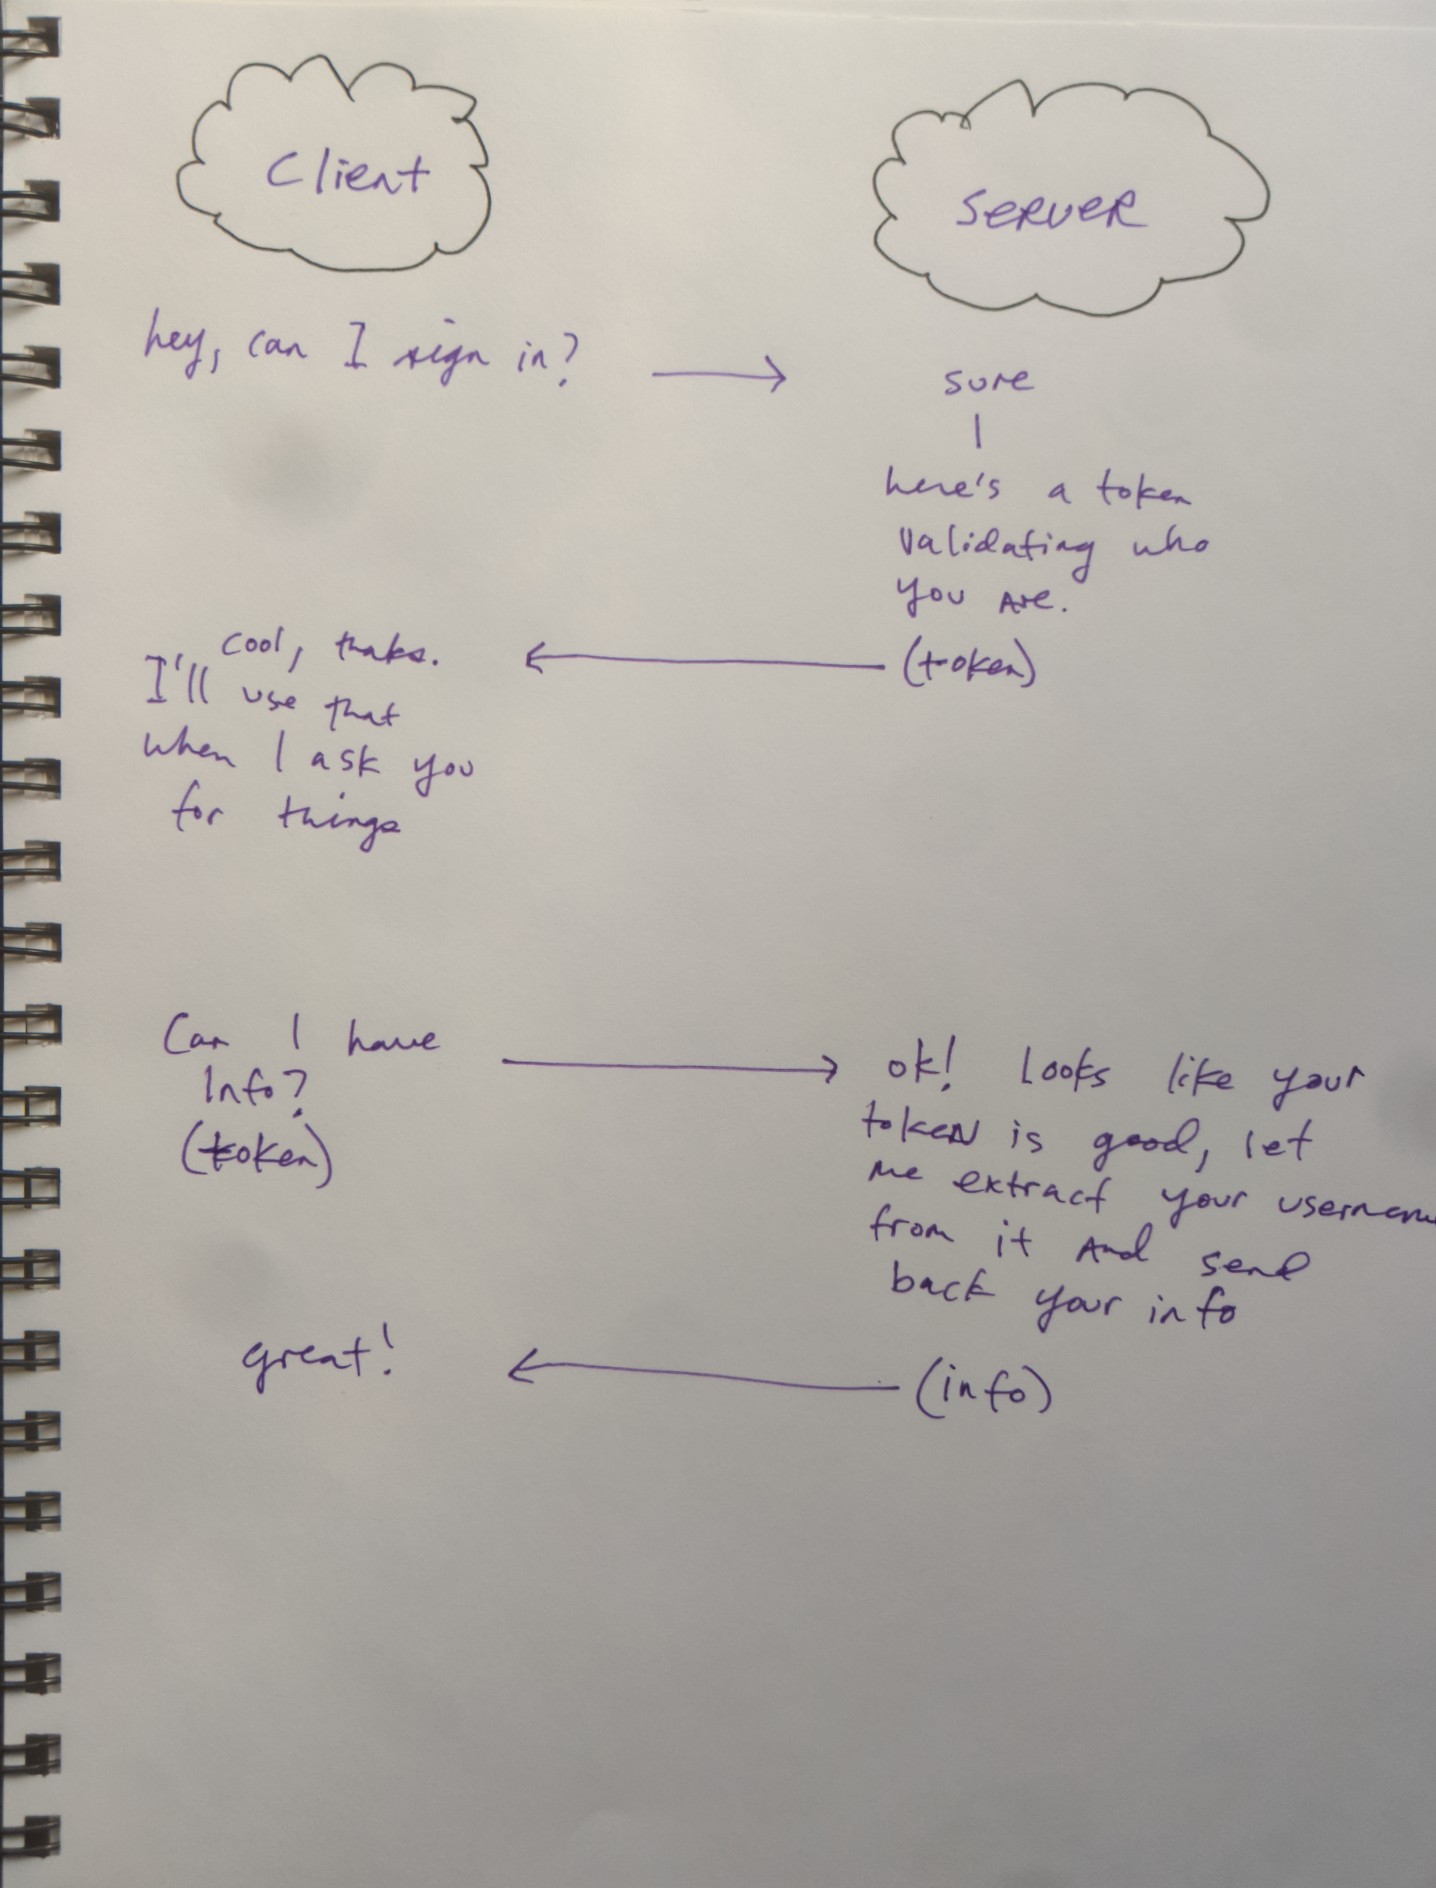 Client
SERVER
hey, can I sign in?
sure
here's a token
validating who
you are.
(token)
cool, thaks.
I'll use that
when I ask you
for things
Can I have
Info?
(token)
ok! looks like your
token is good, let
me extract your usernam
from it and send
back your info
(info)
great!